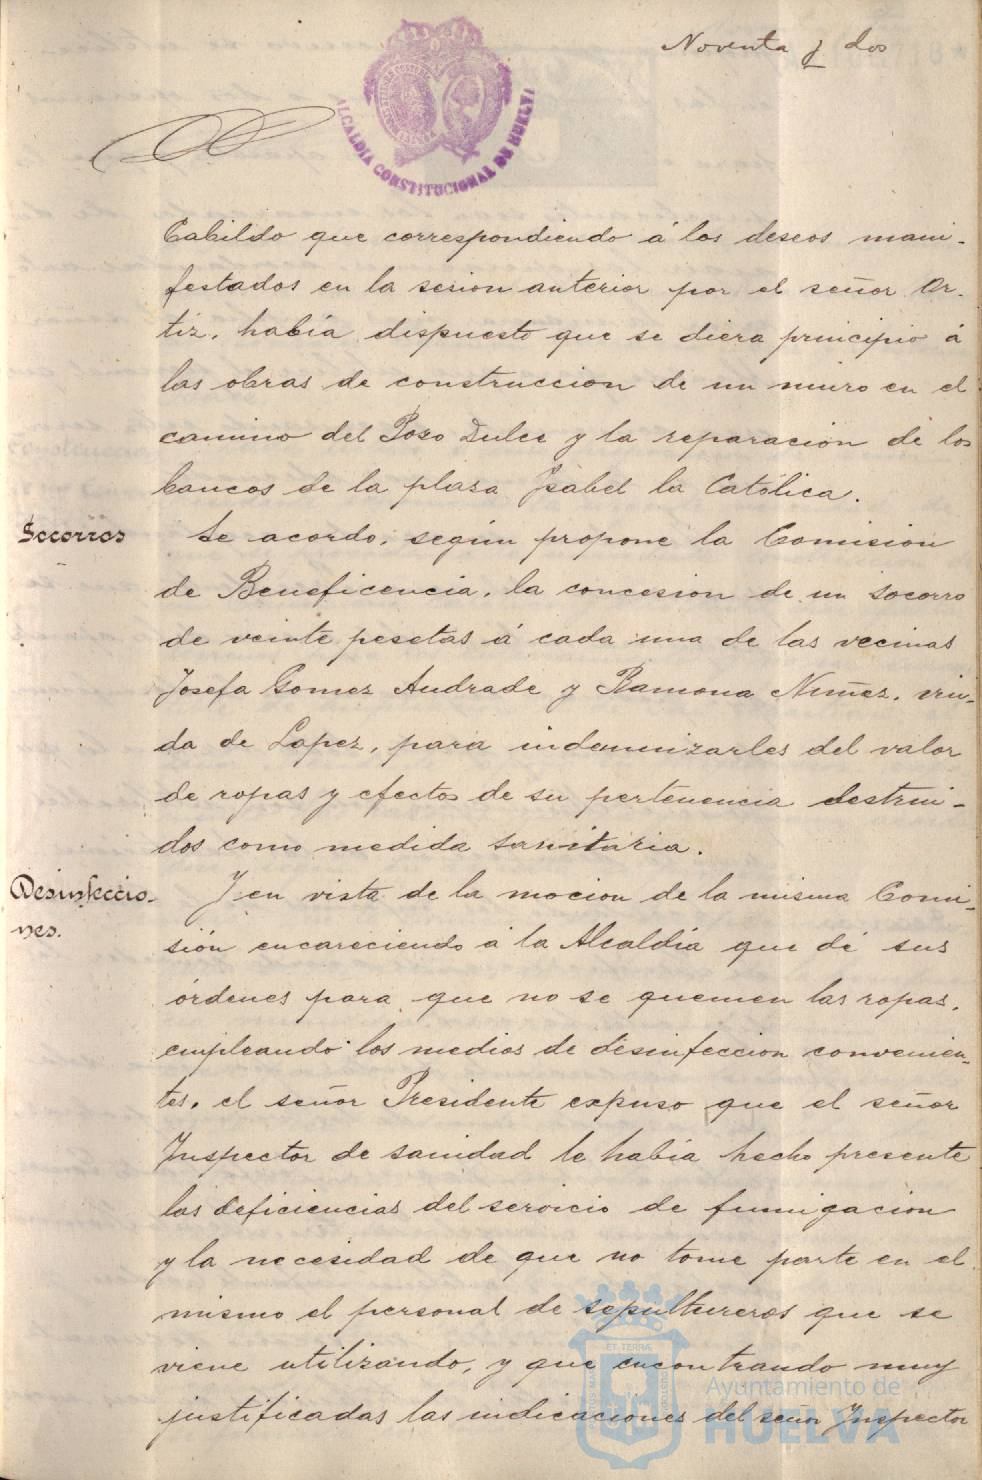 Noventa y dos
ALCALDIA CONSTITUCIONAL DE HUELVA
Cabildo que correspondiendo á los deseos mani-
festados en la sesion anterior por el señor Or-
tiz, había dispuesto que se diera principio á
las obras de construccion de un muro en el
camino del Pozo Dulce y la reparación de los
bancos de la plaza Isabel la Católica.
Socorros
Se acordo, según propone la Comision
de Beneficencia, la concesion de un socorro
de veinte pesetas á cada una de las vecinas
Josefa Gomez Andrade y Ramona Nuñez, viu-
da de Lopez, para indemnizarles del valor
de ropas y efectos de su pertenencia destrui-
dos como medida sanitaria.
Desinfeccio-
nes.
Y en vista de la mocion de la misma Comi-
sión encareciendo á la Alcaldía que dé sus
órdenes para que no se quemen las ropas,
empleando los medios de desinfeccion convenien-
tes, el señor Presidente expuso que el señor
Inspector de sanidad le había hecho presente
las deficiencias del servicio de fumigacion
y la necesidad de que no tome parte en el
mismo el personal de sepultureros que se
viene utilizando, y que encontrando muy
justificadas las indicaciones del señor Inspector
Ayuntamiento de
HUELVA